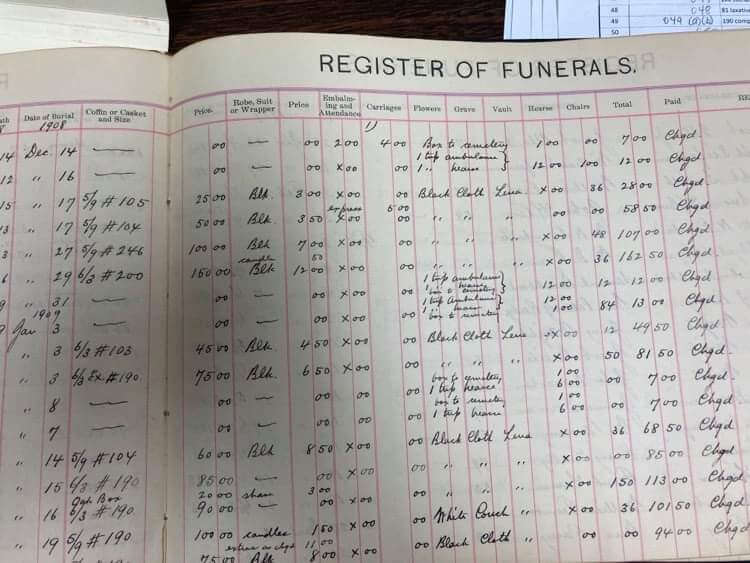 48 048 81 laxative
49 049 (a)(b) 190
50
REGISTER OF FUNERALS.
Date of Burial Coffin or Casket and Size Price. Robe, Suit or Wrapper Price Embalming and Attendance Carriages Flowers Grave Vault Hearse Chairs Total Paid
1908
14 Dec. 14 — 00 — 00 2 00 4 00 Box to cemetery 1 00 00 7 00 Chgd
12 " 16 — 00 — 00 X 00 00 1 trip ambulance 1 " hearse 12 00 1 00 12 00 Chgd.
15 " 17 5/9 # 105 25 00 Blk. 3 00 X 00 00 Black Cloth Lena X 00 36 28 00 Chgd.
" 17 5/9 # 104 50 00 Blk. 3 50 express X 00 5 00 00 " " " 00 00 58 50 Chgd.
" 27 5/9 # 246 100 00 Blk 7 00 X 00 00 " " " X 00 48 107 00 Chgd
" 29 6/3 # 200 150 00 candles Blk 50 12 00 X 00 00 " " " X 00 36 162 50 Chgd.
" 31 — 00 — 00 X 00 00 1 trip ambulance 1 " hearse box to cemetery 12 00 12 12 00 Chgd.
1909
Jan 3 — 00 — 00 X 00 00 1 trip ambulance 1 " hearse box to cemetery 12 00 1 00 84 13 00 Chgd
" 3 6/3 # 103 45 00 Blk 4 50 X 00 00 Black Cloth Lena X 00 12 49 50 Chgd.
" 3 6/3 Ex # 190 75 00 Blk. 6 50 X 00 00 " " " X 00 50 81 50 Chgd.
" 8 — 00 — 00 X 00 00 box to cemetery 1 trip hearse 1 00 6 00 00 7 00 Chgd.
" 7 — 00 — 00 X 00 00 box to cemetery 1 trip hearse 1 00 6 00 00 7 00 Chgd.
" 14 5/9 # 104 60 00 Blk 8 50 X 00 00 Black Cloth Lena X 00 36 68 50 Chgd
" 15 6/3 # 190 85 00 — 00 X 00 00 " " " X 00 00 85 00 Chgd
" 16 Oak Box 6/3 # 190 20 00 90 00 3 00 00 X 00 00 " " X 00 150 113 00 Chgd.
" 19 5/9 # 190 100 00 candles 1 50 X 00 00 White Couch " X 00 36 101 50 Chgd
75 00 extras as chgd Blk 11 00 8 00 X 00 00 Black Cloth " 00 00 94 00 Chgd